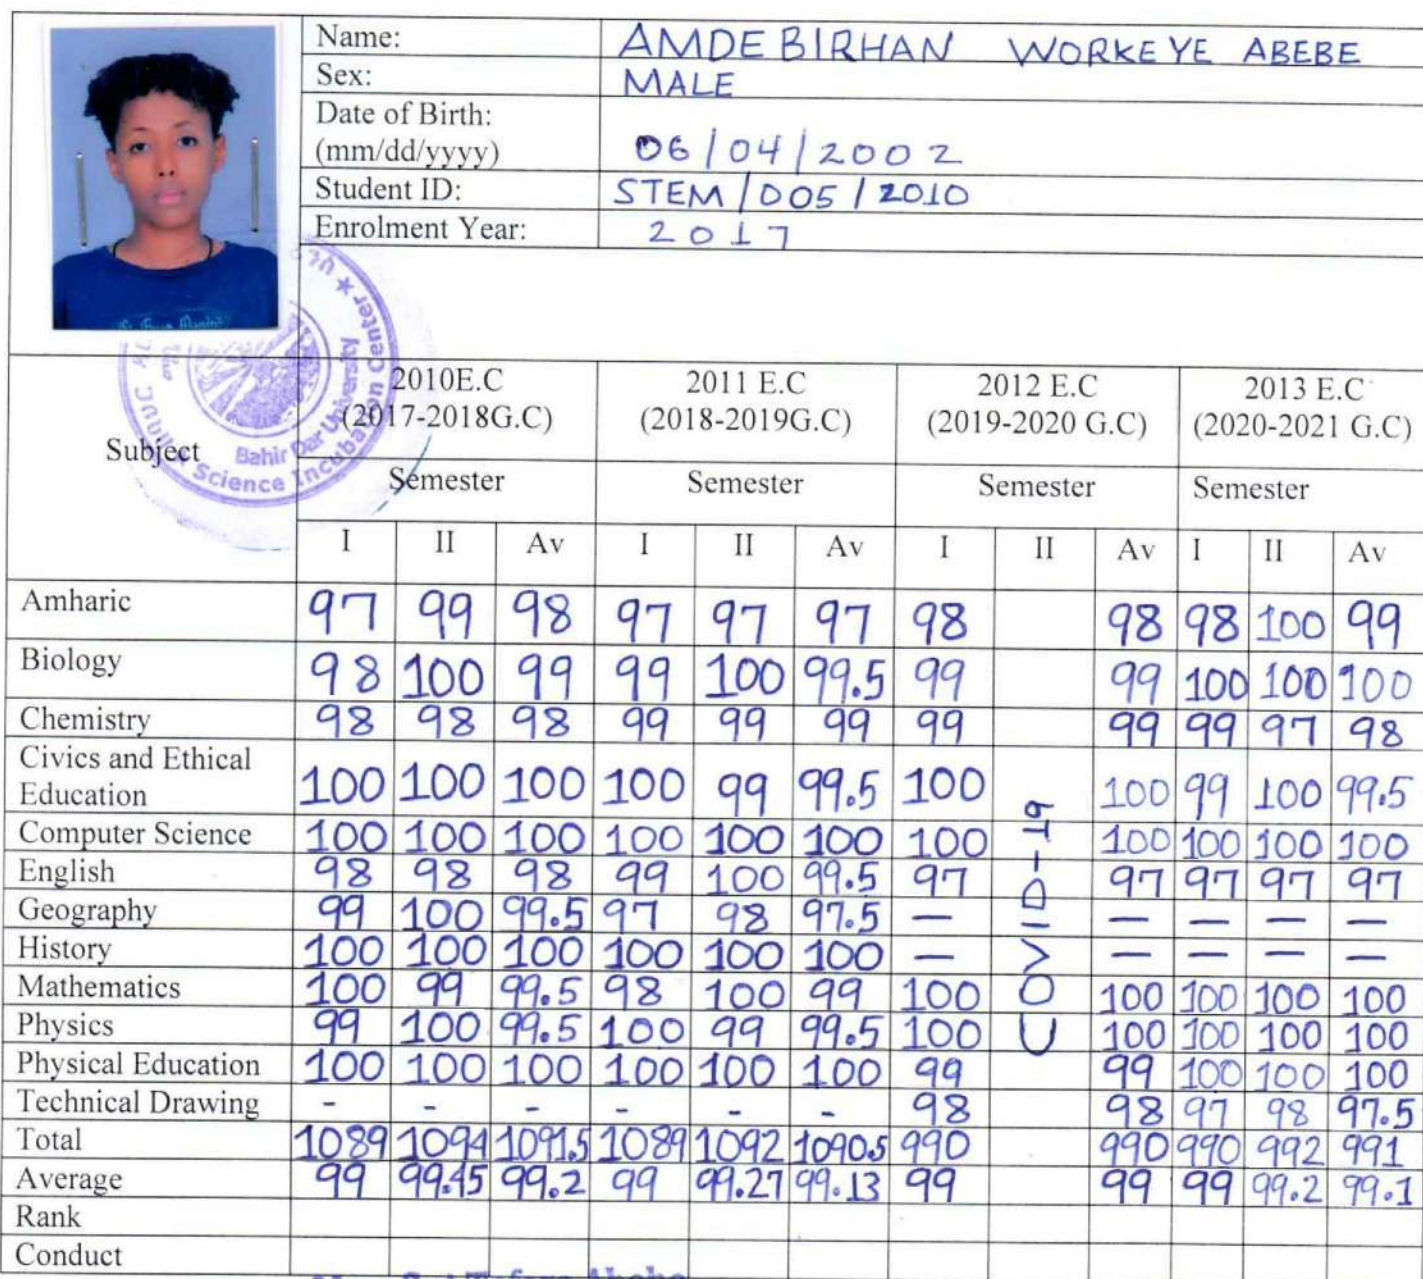 Name: AMDEBIRHAN WORKEYE ABEBE
Sex: MALE
Date of Birth:
(mm/dd/yyyy) 06/04/2002
Student ID: STEM/005/2010
Enrolment Year: 2017
Bahir Dar University
Science Incubation Center
Subject 2010E.C 2011 E.C 2012 E.C 2013 E.C
(2017-2018G.C) (2018-2019G.C) (2019-2020 G.C) (2020-2021 G.C)
Semester Semester Semester Semester
I II Av I II Av I II Av I II Av
Amharic 97 99 98 97 97 97 98 98 98 100 99
Biology 98 100 99 99 100 99.5 99 99 100 100 100
Chemistry 98 98 98 99 99 99 99 99 99 97 98
Civics and Ethical
Education 100 100 100 100 99 99.5 100 100 99 100 99.5
Computer Science 100 100 100 100 100 100 100 100 100 100 100
English 98 98 98 99 100 99.5 97 97 97 97 97
Geography 99 100 99.5 97 98 97.5 — — — — —
History 100 100 100 100 100 100 — — — — —
Mathematics 100 99 99.5 98 100 99 100 100 100 100 100
Physics 99 100 99.5 100 99 99.5 100 100 100 100 100
Physical Education 100 100 100 100 100 100 99 99 100 100 100
Technical Drawing - - - - - - 98 98 97 98 97.5
COVID-19
Total 1089 1094 1091.5 1089 1092 1090.5 990 - 990 990 992 991
Average 99 99.45 99.2 99 99.27 99.13 99 99 99 99.2 99.1
Rank
Conduct